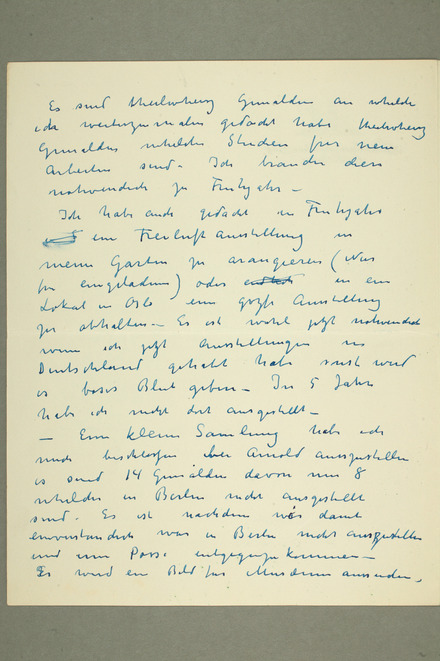 Es sind theilweherg Gemalder an whelche
ich weiterzumalen gedacht habe theilweherg
Gemalder whelche Studien fur neue
Arbeiten sind. Ich brauche diese
notwendich zu Fruhjahr –
Ich habe auch gedacht in Fruhjahr
ein Freiluft Ausstellung in
meine Garten zu arangieren (Nur
fur eingeladene) oder in ein
Lokal in Oslo eine Ausstellung
zu abhalten – Es ist wohl jetzt notwendich
wenn ich jetzt Ausstellungen in
Deutschland gehabt habe sonst wird
es boses Blut geben – In 5 Jahre
habe ich nicht dort ausgestellt –
– Eine kleine Samlung habe ich
auch beschlossen bei Arnold auszustellen
es sind 14 Gemälder davon nur 8
whelche in Berlin nicht ausgestellt
sind. Es ist nachdem wir damit
einverstanden was in Berlin nicht ausgestellt
und um Posse entgegenzukommen –
Es wird ein Bild fur Museum